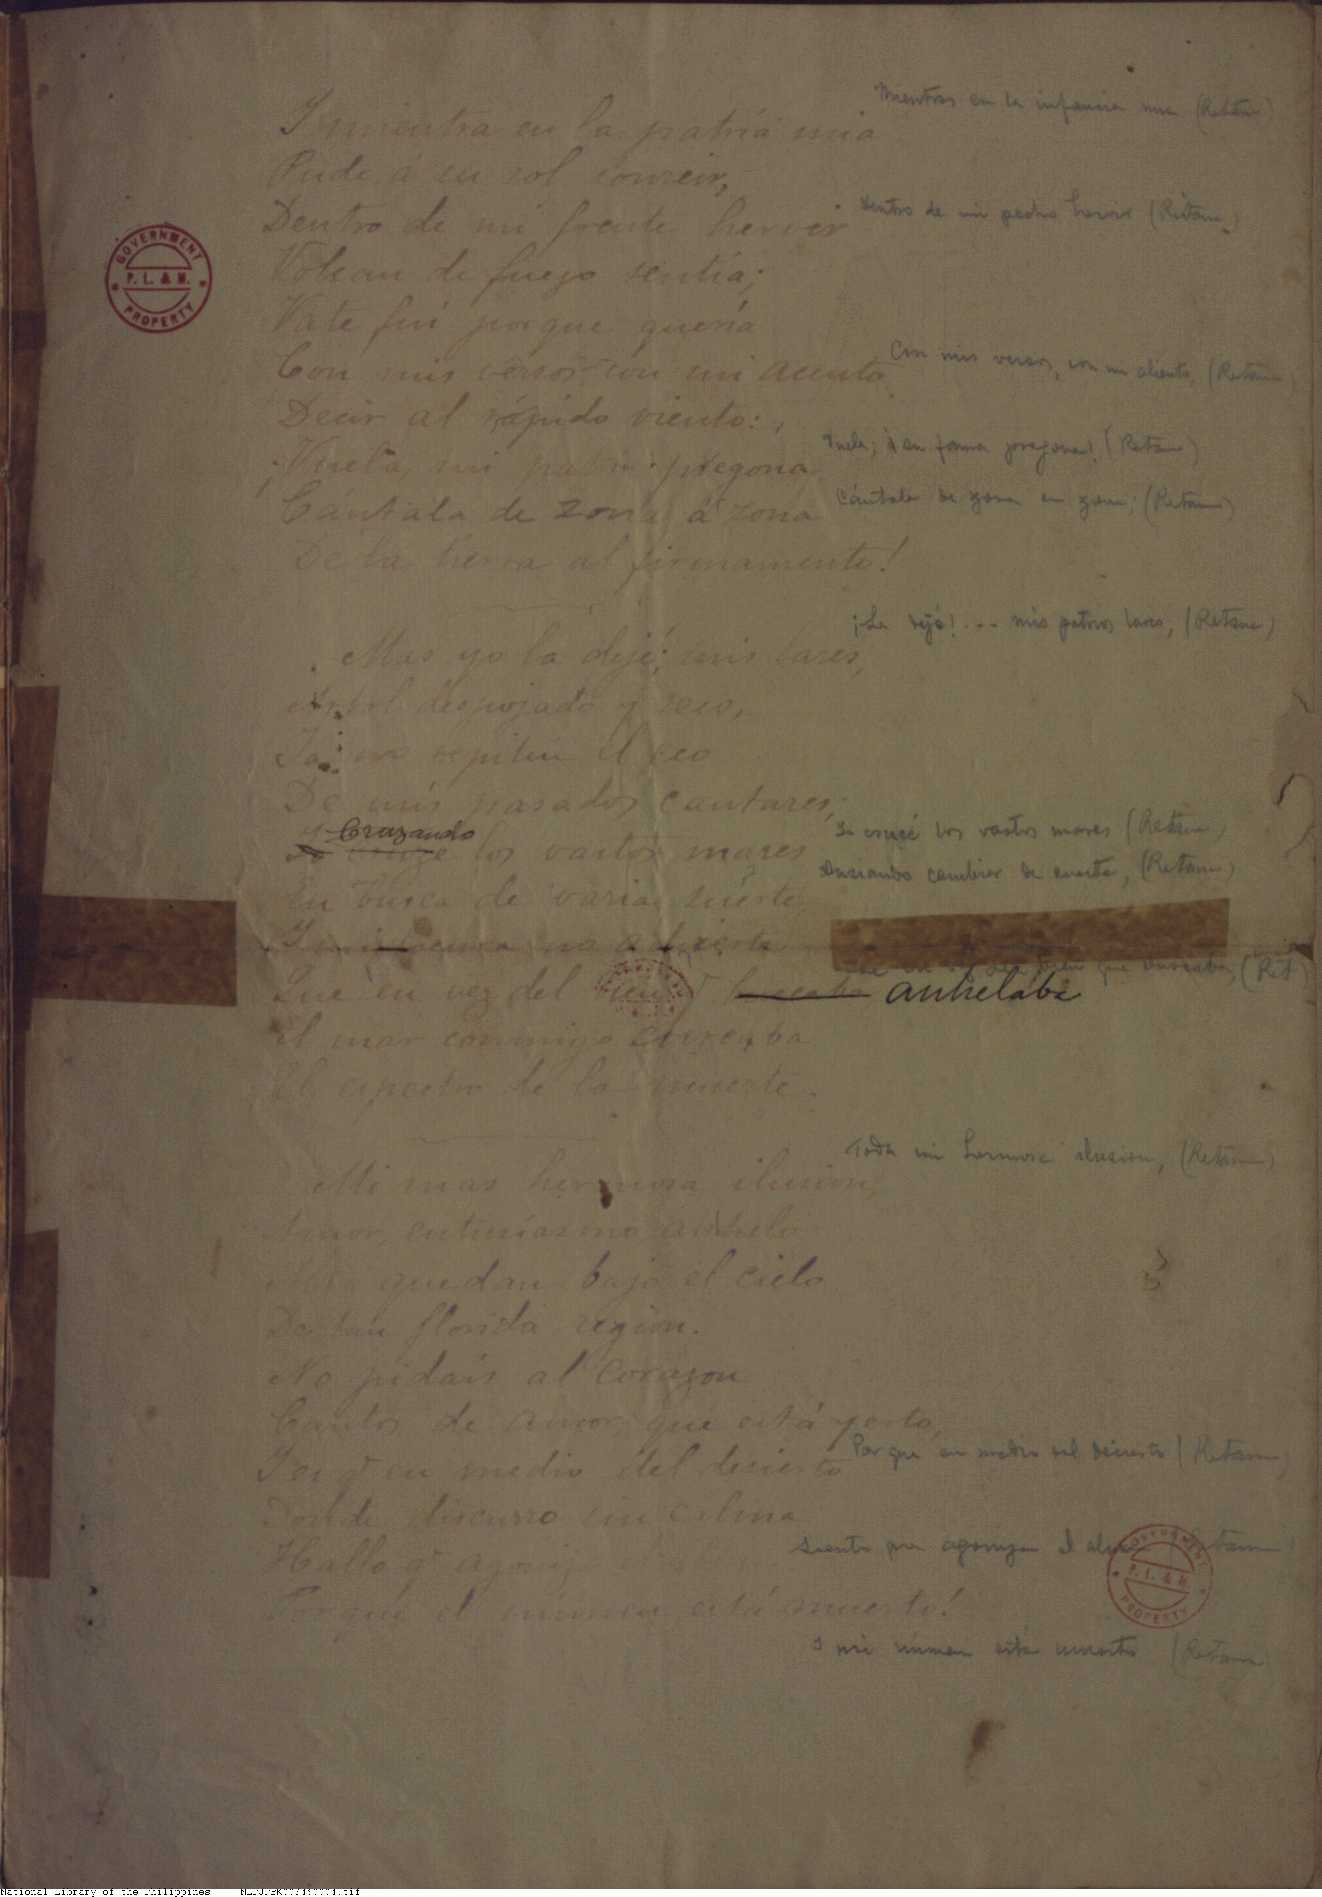 Y mientra en la patria mia
Mientras en la infancia mia (Retana)
Pude á su sol sonreir,
Dentro de mi frente hervir
Dentro de mi pecho hervir (Retana)
Volcan de fuego sentía;
Vate fuí porque quería
Con mis versos con mi acento
Con mis versos, con mi aliento, (Retana)
Decir al rápido viento:
¡Vuela, mi patria pregona
Vuela; su fama pregona! (Retana)
Cántala de zona á zona
Cántala de zona en zona; (Retana)
De la tierra al firmamento!
¡La dejé! ... mis patrios lares, (Retana)
Mas yo la dejé; mis lares,
Arbol despojado y seco,
Ya no repiten el eco
De mis pasados cantares;
Cruzando
Yo crucé los vastos mares
Yo crucé los vastos mares (Retana)
En busca de varia suerte,
Ansiando cambiar de suerte, (Retana)
Y mi locura no advierte
Que en vez del bien q̃ buscaba anhelaba
que buscaba, (Ret)
El mar conmigo surcaba
El espectro de la muerte.
Toda mi hermosa ilusion, (Retana)
Mi mas hermosa ilusion,
Amor, entusiasmo anhelo
quedan bajo el cielo
De tan florida region.
No pidais al corazon
Cantos de amor, que está yerto,
Porque en medio del desierto (Retana)
en medio del desierto
Donde discurro sin calma
Siento que agoniza el alma (Retana)
Hallo q̃ agoniza el alma
Porque el númen está muerto!
Y mi númen está muerto (Retana)
GOVERNMENT
P. L. & M.
PROPERTY
GOVERNMENT
P. L. & M.
PROPERTY
National Library of the Philippines